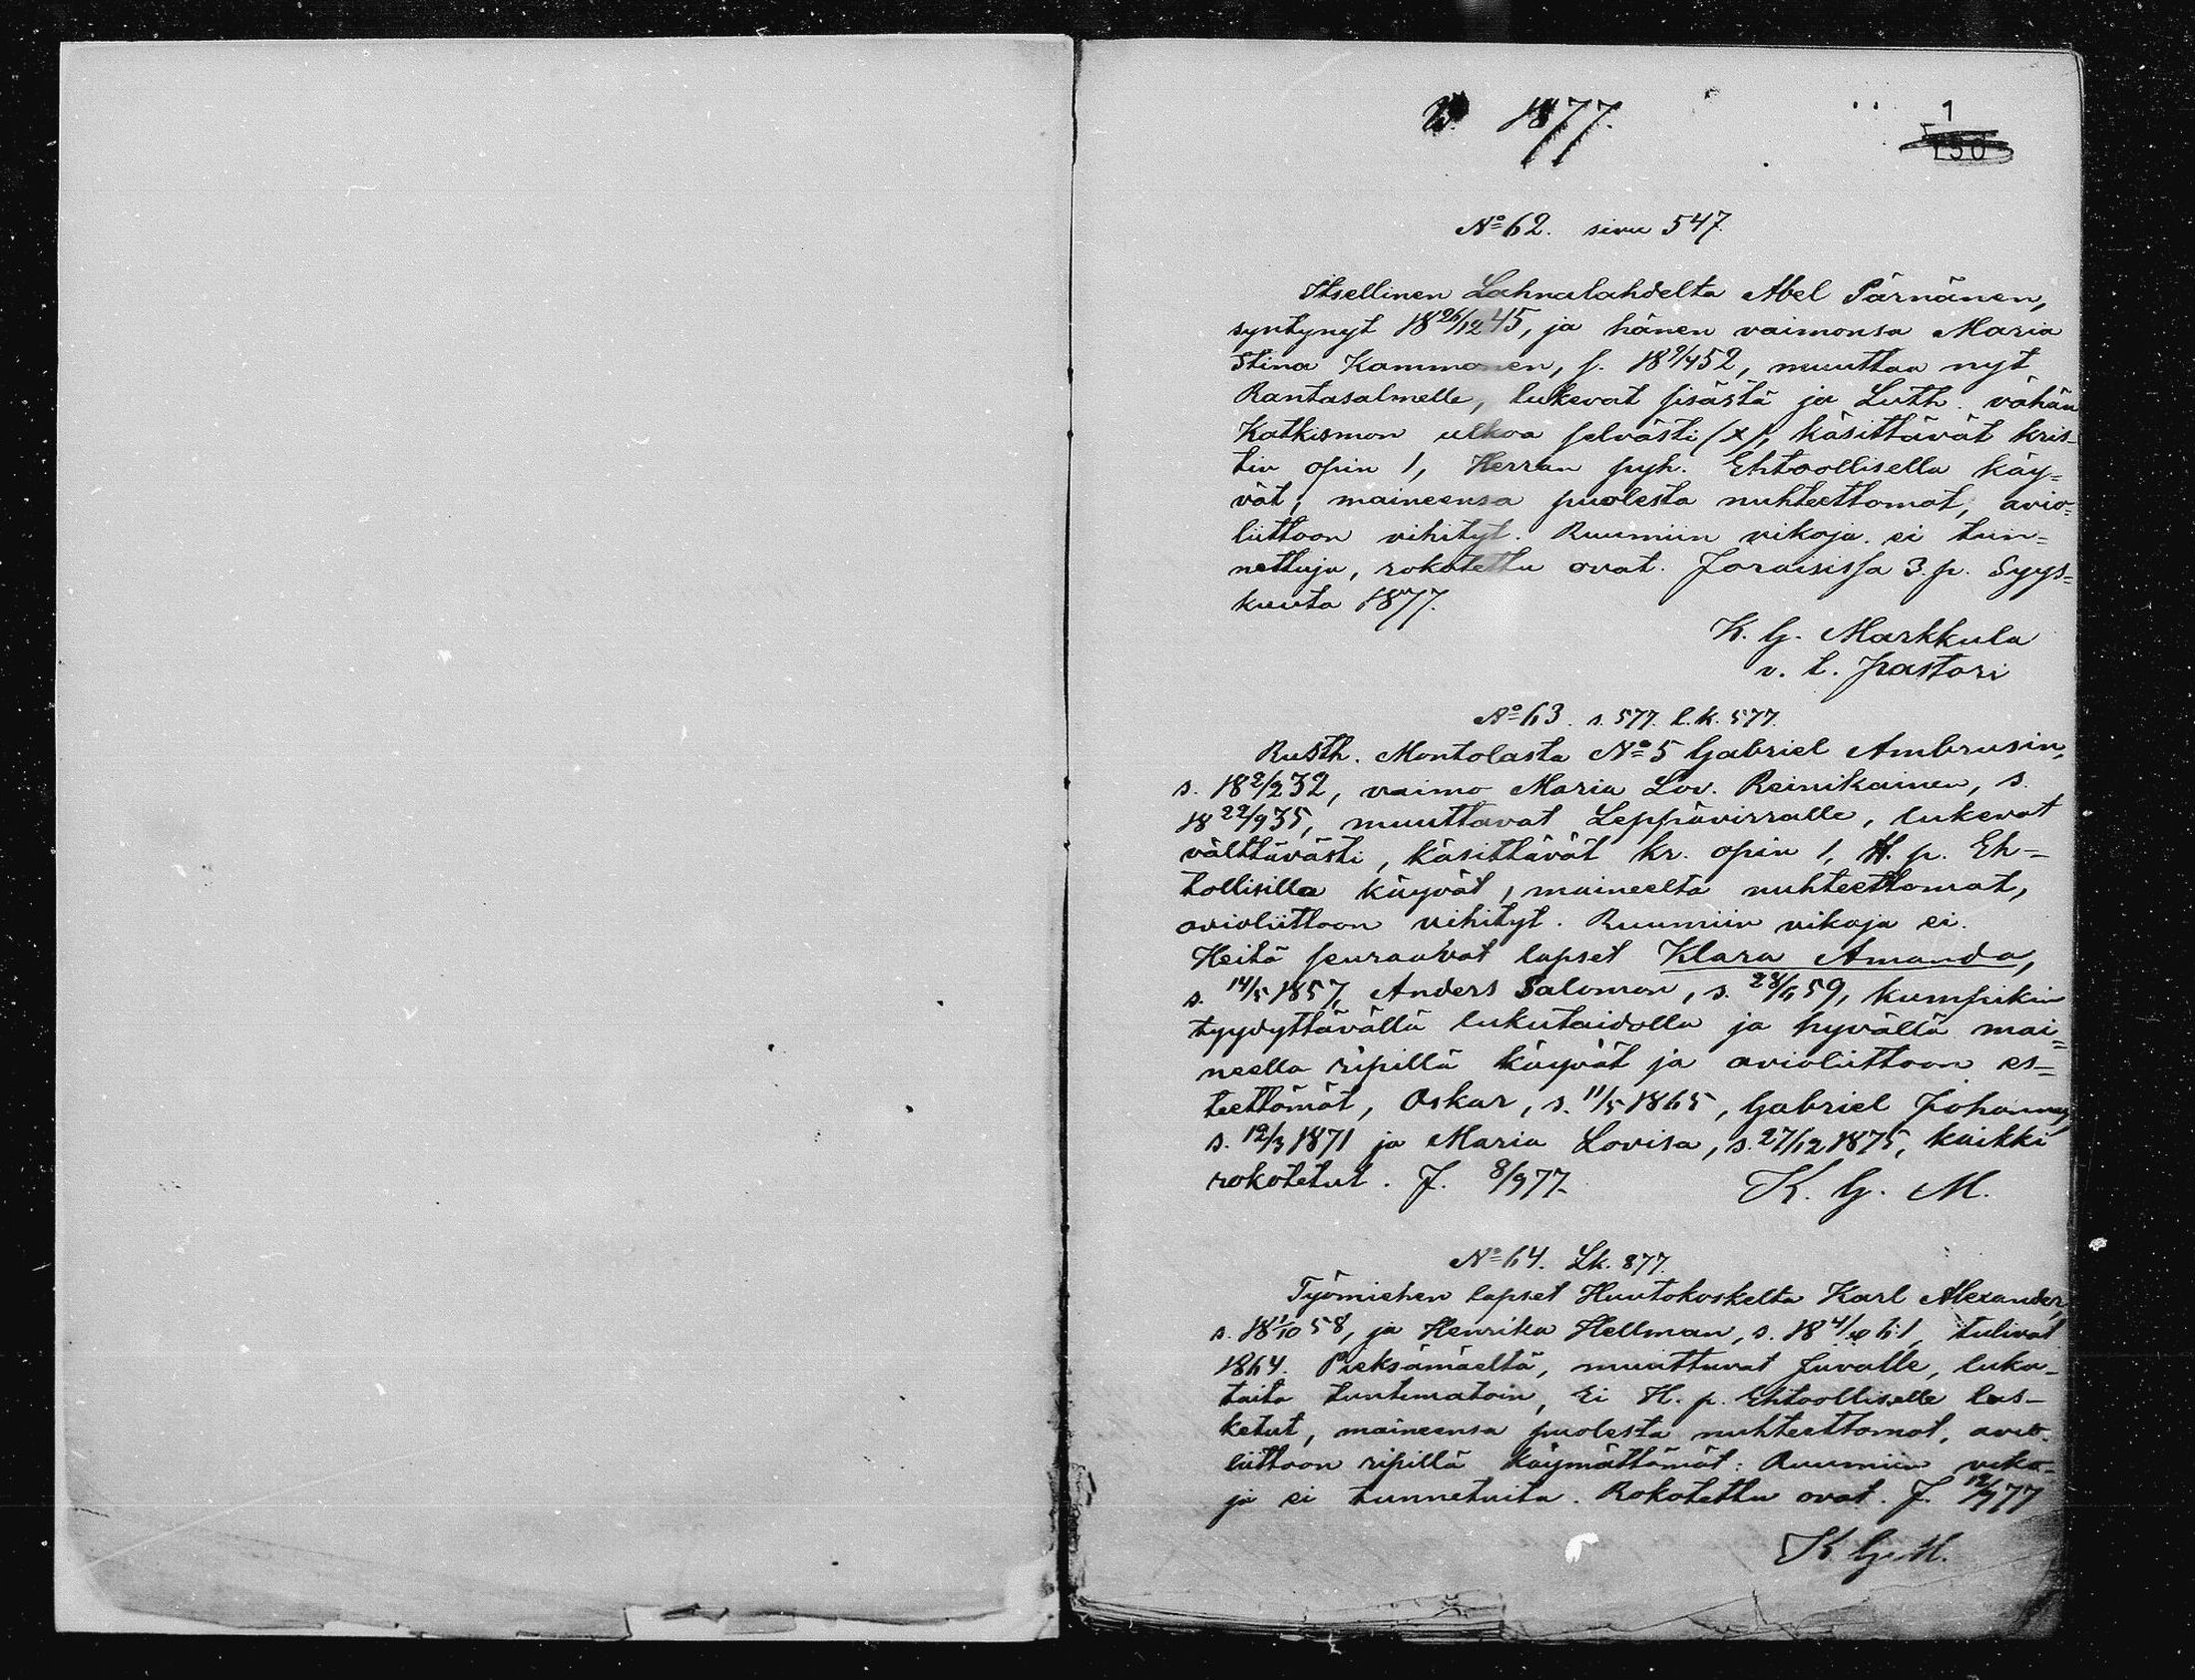 v. 1877.
1
150
No 62. sivu 547.
Itsellinen Lahnalahdelta Abel Pärnänen,
syntynyt 18 26/12 45, ja hänen vaimonsa Maria
Stina Kammonen, s. 18 9/4 52, muuttaa nyt
Rantasalmelle, lukevat sisästä ja Luth. vähän
Katkismon ulkoa selvästi (x), käsittävät kris-
tin opin 1, Herran pyh. Ehtoollisella käy=
vät, maineensa puolesta nuhteettomat, avio=
liittoon vihityt. Ruumiin vikoja ei tun=
nettuja, rokotettu ovat. Joroisissa 3. p. Syys=
kuuta 1877.
K. G. Markkula
v. t. pastori
No 63. s. 577. l.k. 577.
Rusth. Montolasta No 5 Gabriel Ambrusin,
s. 18 2/2 32, vaimo Maria Lov. Reinikainen, s.
18 22/9 35, muuttavat Leppävirralle, lukevat
välttävästi, käsittävät kr. opin 1, H. p. Eh=
tollisilla käyvät, maineelta nuhteettomat,
avioliittoon vihityt. Ruumiin vikoja ei.
Heitä seuraavat lapset Klara Amanda,
s. 14/5 1857, Anders Salomon, s. 59, kumpikin
tyydyttävällä lukutaidolla ja hyvällä mai=
neella ripillä käyvät ja avioliittoon es=
teettömät, Oskar, s. 11/5 1865, Gabriel Johannes,
s. 12/3 1871 ja Maria Lovisa, s. 27/12 1875, kaikki
rokotetut. J. 8/9 77.
K. G. M.
No 64. Lk. 877.
Työmiehen lapset Huutokoskelta Karl Alexander,
s. 18 1/10 58, ja Henrika Hellman, s. 18 61, tulivat
1864. Pieksämäeltä, muuttavat Juvalle, luku-
taito tuntematoin, Ei H. p. Ehtoolliselle las-
ketut, maineensa puolesta nuhteettomat, avio-
liittoon ripillä käymättömät: Ruumiin viko-
ja ei tunnetuita. Rokotettu ovat. J. 12/9 77
K. G. M.